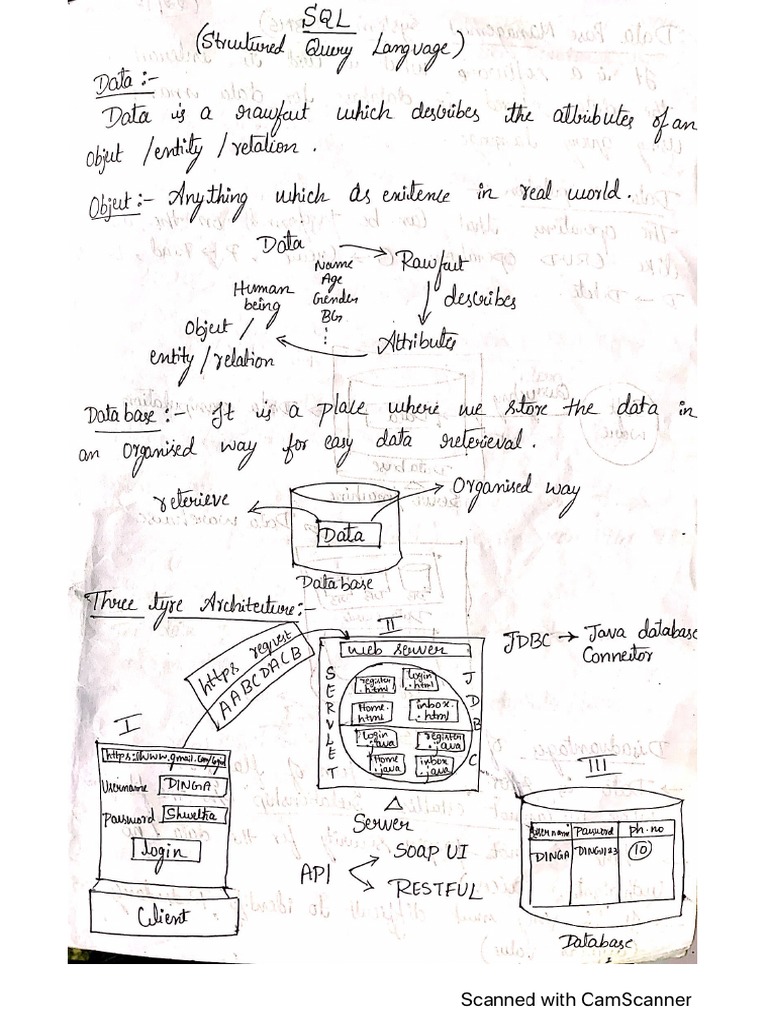 SQL
(Structured Query Language)
Data :-
Data is a rawfact which describes the attributes of an
Object / entity / relation .
Object :- Anything which as existence in real world .
Data
Rawfact
Name
Age
Gender
BG
:
Human
being
describes
Object /
entity / relation
Attributes
Database :- It is a place where we store the data in
an Organised way for easy data reterieval .
reterieve
Organised way
Data
Database
Three tyre Architecture :-
II
JDBC → Java database
Connector
https request
AABCDACB
web server
SERVLET
JDBC
register
.html
login
.html
Home.
html
inbox.
.html
login
.java
register
.java
Home
.java
inbox
.java
Server
API
SOAP UI
RESTFUL
I
https://www.gmail.com/
Username DINGA
Password Shwetha
login
Client
III
Username Password ph.no
DINGA DINGA123 10
Database
Scanned with CamScanner